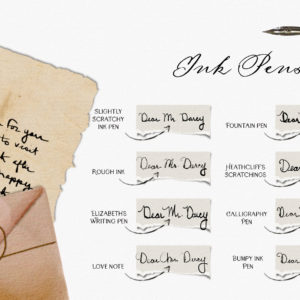 Ink Pens
For your
to visit
after
happy
SLIGHTLY
SCRATCHY
INK PEN
Dear Mr. Darcy
FOUNTAIN PEN
ROUGH INK
Dear Mr. Darcy
HEATHCLIFF'S
SCRATCHINGS
Dear
ELIZABETH'S
WRITING PEN
Dear Mr. Darcy
CALLIGRAPHY
PEN
Dear
LOVE NOTE
Dear Mr. Darcy
BUMPY INK
PEN
Dear